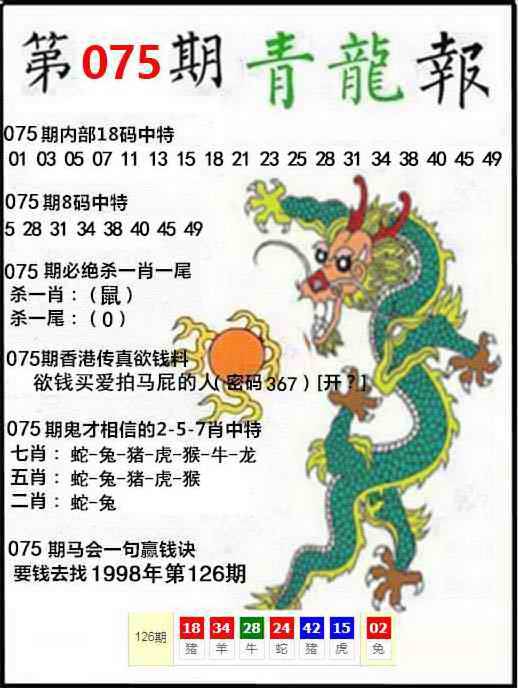 第075期青龍報
075期内部18码中特
01 03 05 07 11 13 15 18 21 23 25 28 31 34 38 40 45 49
075期8码中特
5 28 31 34 38 40 45 49
075期必绝杀一肖一尾
杀一肖：（鼠）
杀一尾：（0）
075期香港传真欲钱料
欲钱买爱拍马屁的人(密码367)[开？]
075期鬼才相信的2-5-7肖中特
七肖：蛇-兔-猪-虎-猴-牛-龙
五肖：蛇-兔-猪-虎-猴
二肖：蛇-兔
075期马会一句赢钱诀
要钱去找1998年第126期
126期 18 34 28 24 42 15 02
猪 羊 牛 蛇 猪 虎 兔